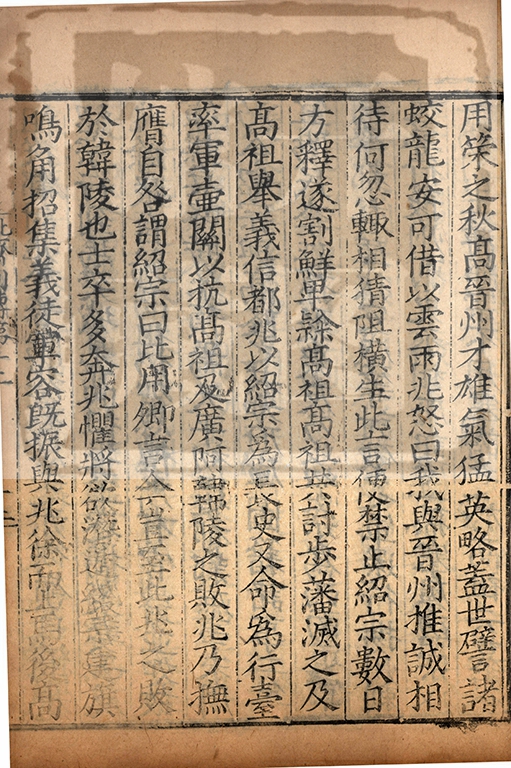 用策之秋髙晉州才雄氣猛英略蓋世譬諸
蛟龍安可借以雲雨兆怒曰我與晉州推誠相
待何忽輙相猜阻橫生此言便禁止紹宗數日
方釋遂割鮮卑隸髙祖髙祖共討歩藩滅之及
髙祖舉義信都兆以紹宗為長史又命為行臺
率軍壷關以抗髙祖及廣阿韓陵之敗兆乃撫
膺自咎謂紹宗曰比用卿言今豈至此兆之敗
於韓陵也士卒多奔兆懼將欲潛遁紹宗建旗
鳴角招集義徒軍容旣振與兆徐而上馬後髙